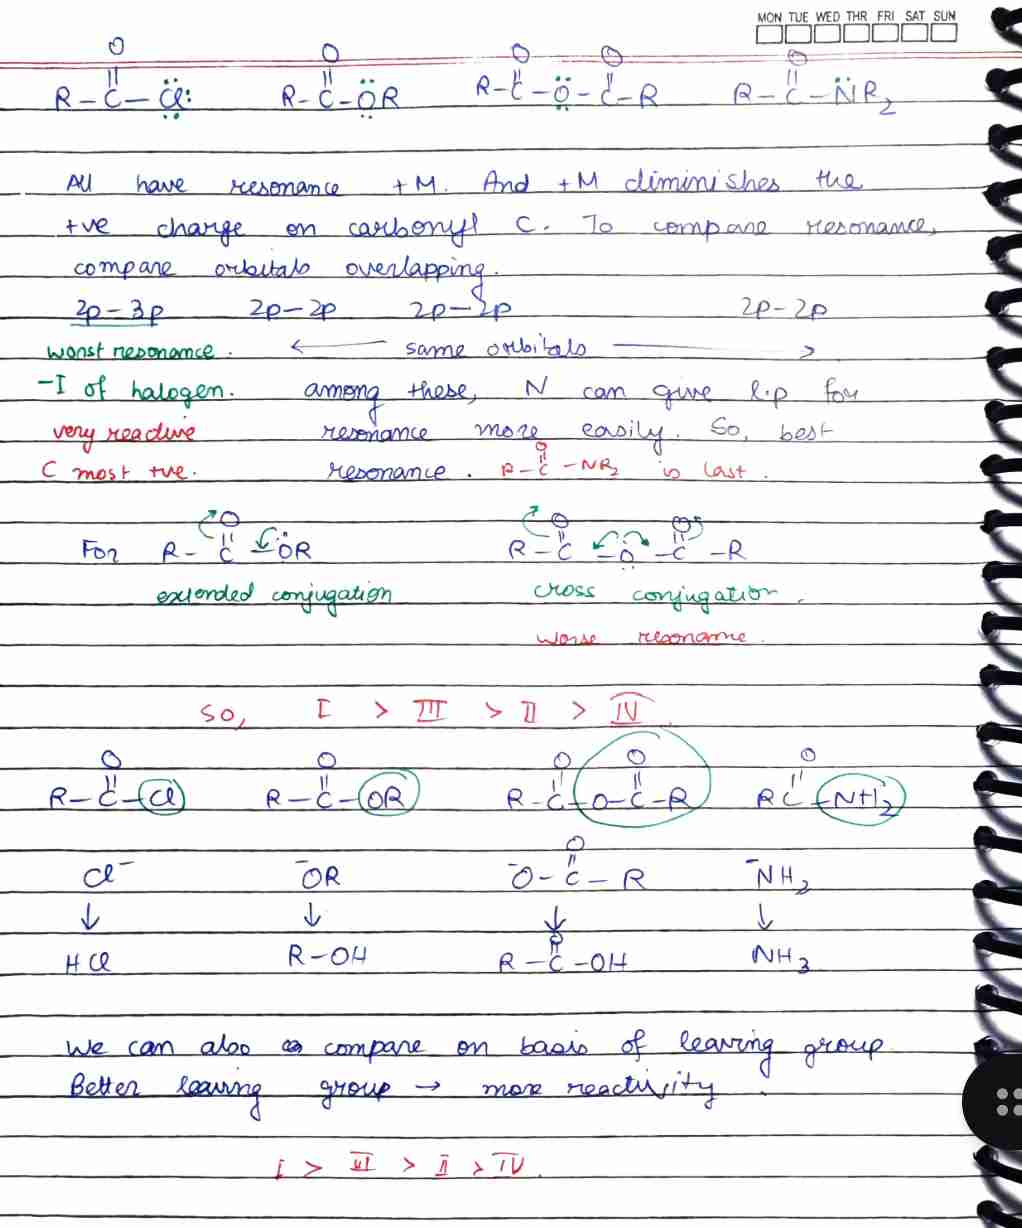 MON TUE WED THR FRI SAT SUN
O O O O O
R-C-Cl: R-C-OR R-C-O-C-R R-C-NR2
All have resonance +M. And +M diminishes the
+ve charge on carbonyl C. To compare resonance,
compare orbitals overlapping.
2p-3p 2p-2p 2p-2p 2p-2p
worst resonance. ← same orbitals →
-I of halogen. among these, N can give l.p for
very reactive resonance more easily. So, best
C most +ve. resonance. R-C-NR2 is last.
O
O O O
For R-C-OR R-C-O-C-R
extended conjugation cross conjugation.
worse resonanne.
So, I > III > II > IV.
O O O O O
R-C-Cl R-C-OR R-C-O-C-R RC-NH2
O
Cl⁻ ⁻OR ⁻O-C-R ⁻NH2
↓ ↓ ↓ ↓
O
HCl R-OH R-C-OH NH3
We can also compare on basis of leaving group
Better leaving group → more reactivity.
I > III > II > IV.